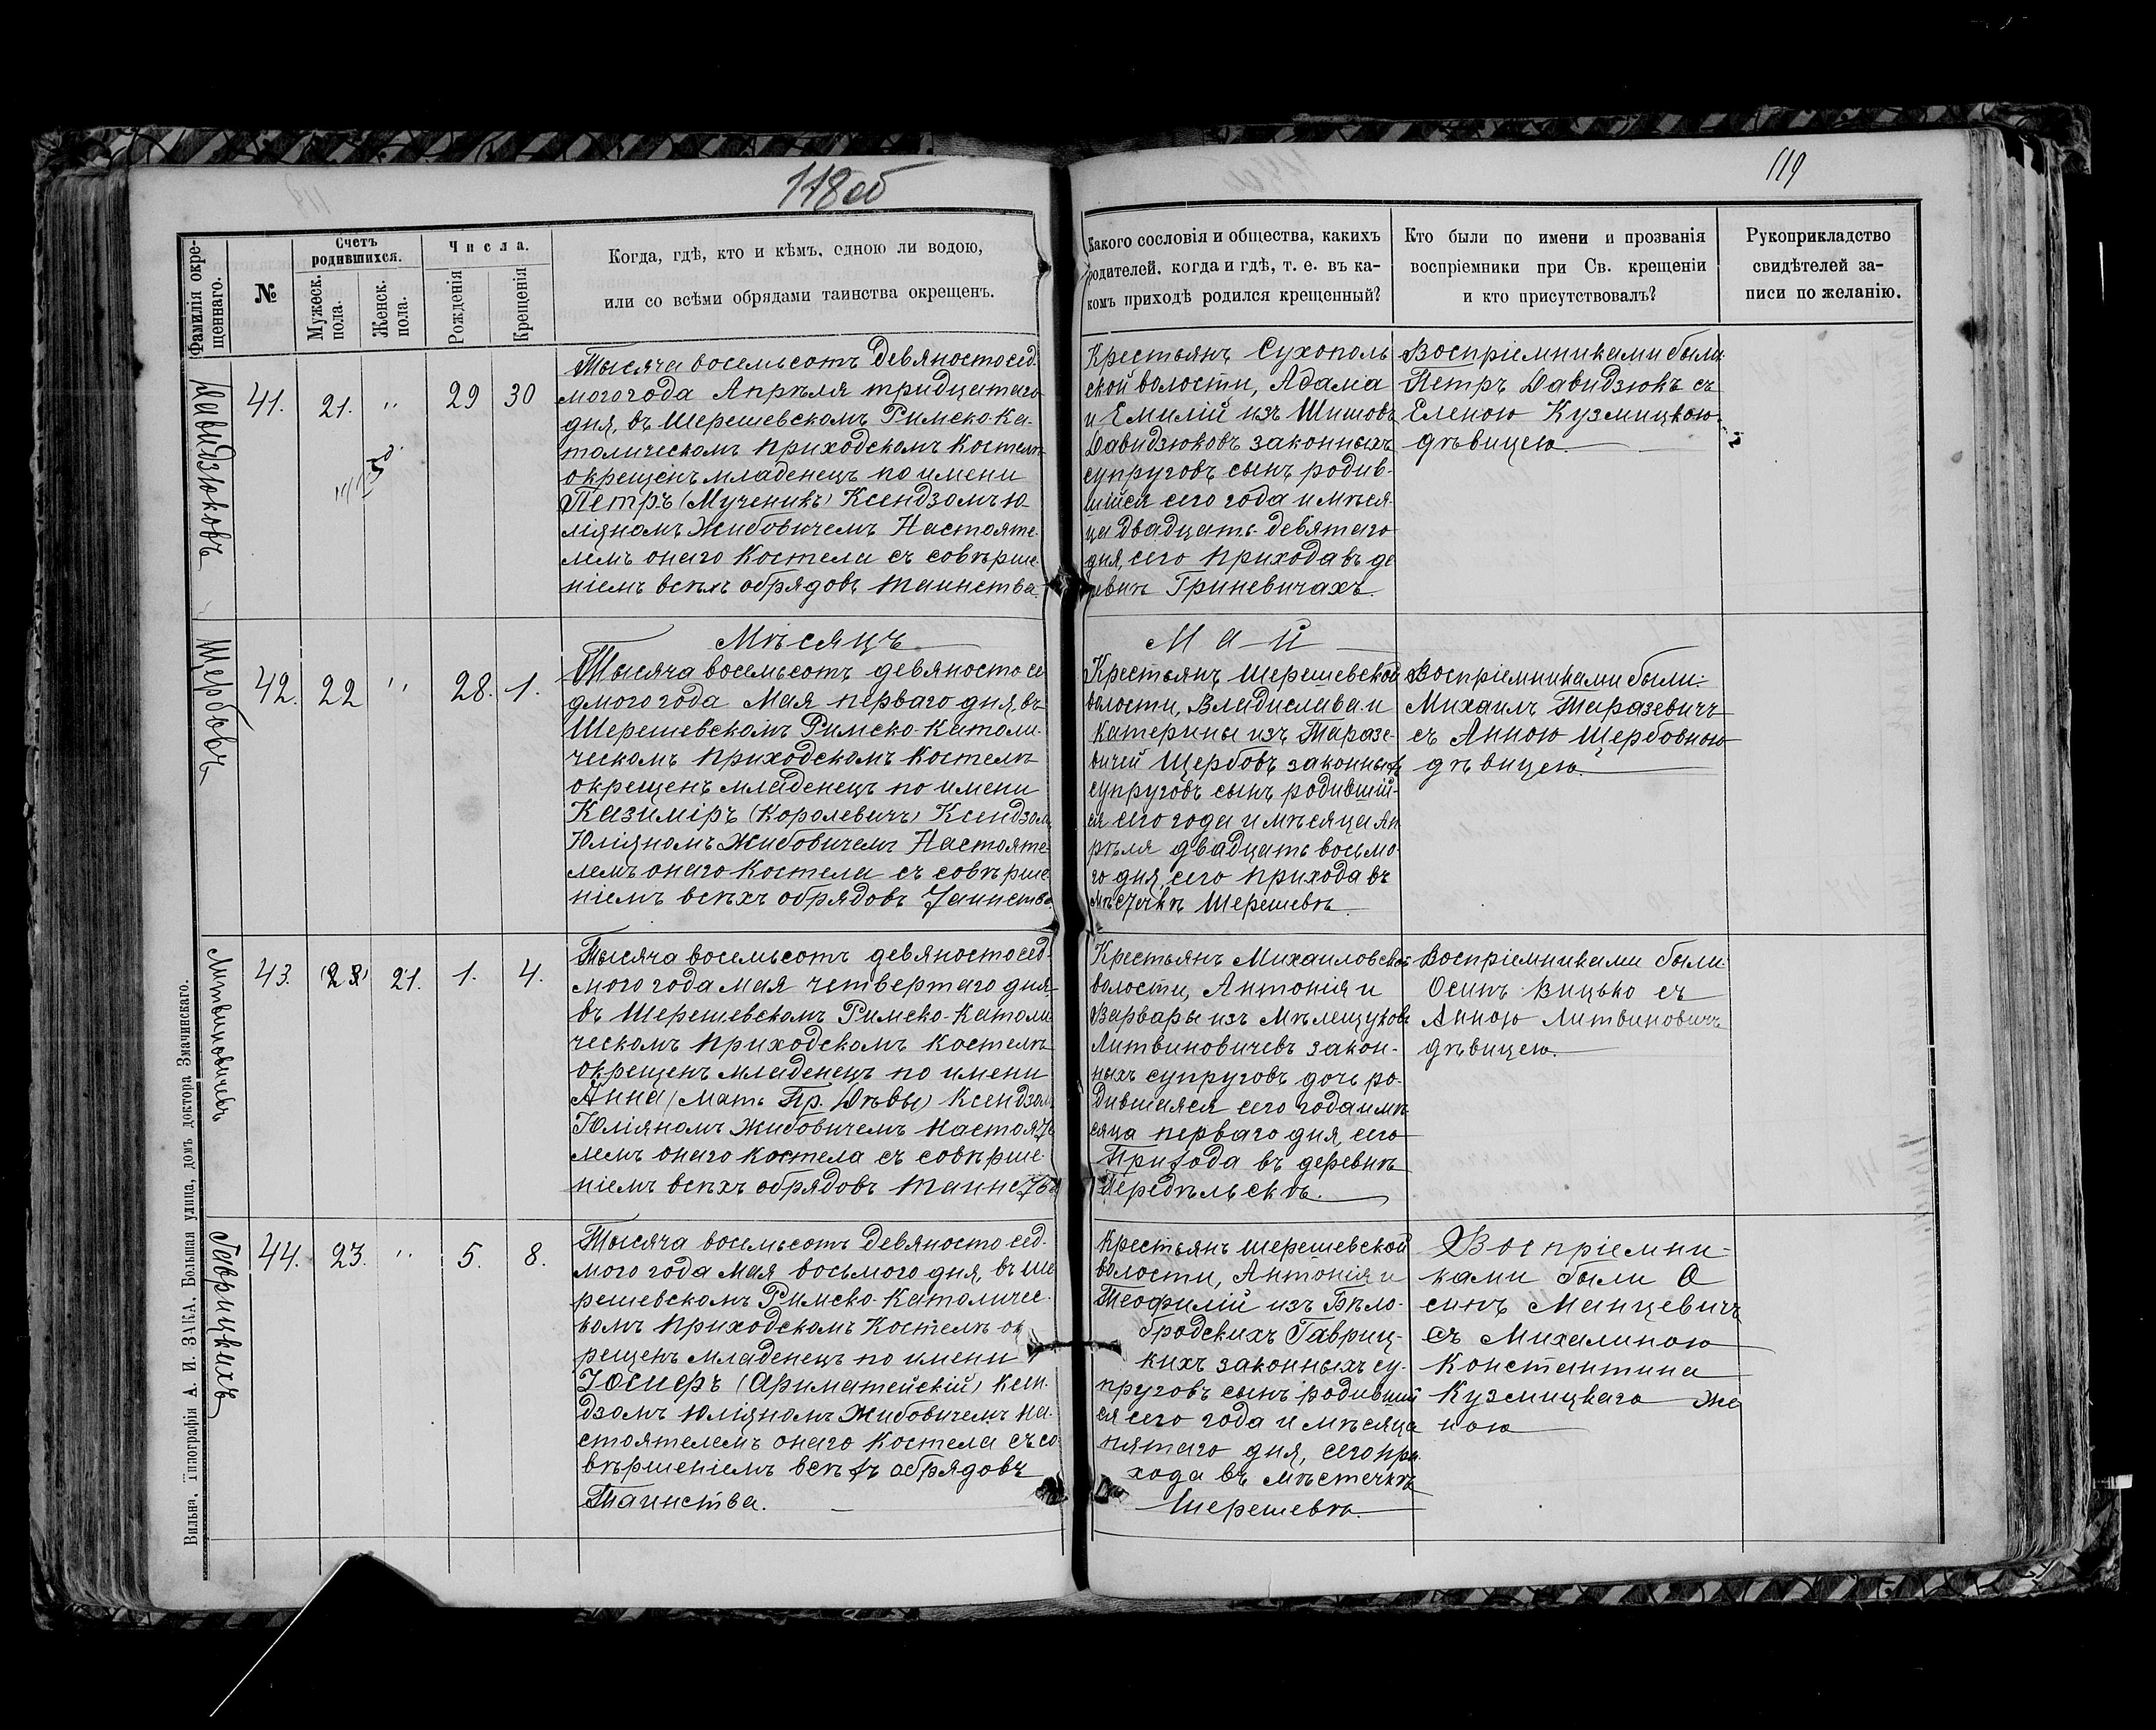 118 об
119
Фамилія окре-
щеннаго.
№
Счетъ
родившихся.
Мужеск.
пола.
Женск.
пола.
Числа.
Рожденія
Крещенія
Когда, гдѣ, кто и кѣмъ, одною ли водою,
или со всѣми обрядами таинства окрещенъ.
Какого сословія и общества, какихъ
родителей, когда и гдѣ, т. е. въ ка-
комъ приходѣ родился крещенный?
Кто были по имени и прозванія
воспріемники при Св. крещеніи
и кто присутствовалъ?
Рукоприкладство
свидѣтелей за-
писи по желанію.
Давидзюковъ
41. 21. " 29 30
Тысяча восемьсотъ девяностосед-
могогода Апрѣля тридцатаго
дня, въ Шерешевскомъ Римско-Ка-
толическомъ приходскомъ костелѣ
окрещенъ младенецъ по имени
Петръ (Мученикъ) Ксендзомъ Ю-
ліяномъ Жибовичемъ Настояте-
лемъ онаго Костела съ совѣрше-
ніемъ всѣхъ обрядовъ таинства.
Крестьянъ Сухополь
ской волости, Адама
и Емилій изъ Шишовъ
Давидзюковъ законныхъ
супруговъ сынъ родив-
шійся сего года и мѣся-
ца двадцать девятаго
дня, сего прихода въ де
ревнѣ Гриневичахъ.
Воспріемниками были
Петръ Давидзюкъ съ
Еленою Кузмицкою
дѣвицею.
Мѣсяцъ
Май
Щербовъ
42. 22 " 28. 1.
Тысяча восемьсотъ девяносто се
дмого года Мая перваго дня, въ
Шерешевскомъ Римско-Католи-
ческомъ приходскомъ костелѣ
окрещенъ младенецъ по имени
Казиміръ (Королевичъ) Ксендзомъ
Юліяномъ Жибовичемъ Настояте-
лемъ онаго Костела съ совѣрше-
ніемъ всѣхъ обрядовъ Таинства.
Крестьянъ Шерешевской
волости, Владислава и
Катерины изъ Таразе-
вичей Щербовъ законныхъ
супруговъ сынъ родившій-
ся сего года и мѣсяца Ап
рѣля двадцать восьмо-
го дня, сего прихода въ
мѣстечкѣ Шерешевѣ.
Воспріемниками были:
Михаилъ Таразевичъ
съ Анною Щербовною
дѣвицею.
Литвиновичевъ
43. (23) 21. 1. 4.
Тысяча восемьсотъ девяностосед-
мого года мая четвертаго дня,
въ Шерешевскомъ Римско-Католи
ческомъ приходскомъ костелѣ
окрещенъ младенецъ по имени
Анна (Мать Пр. Дѣвы) Ксендзомъ
Юліяномъ Жибовичемъ Настояте
лемъ онаго костела съ совѣрше-
ніемъ всѣхъ обрядовъ таинства
Крестьянъ Михаиловской
волости, Антонія и
Варвары изъ Мѣлещуковъ
Литвиновичевъ закон-
ныхъ супруговъ дочь ро-
дившаяся сего года и мѣ
сяца перваго дня, сего
Прихода въ деревнѣ
Передѣльскъ.
Воспріемниками были
Осипъ Вицько съ
Анною Литвиновичъ
дѣвицею.
Гаврицкихъ
44. 23. " 5. 8.
Тысяча восемьсотъ девяносто сед-
мого года мая восьмого дня, въ Ше
решевскомъ Римско-Католичес-
комъ приходскомъ Костелѣ ок
рещенъ младенецъ по имени
Іосифъ (Ариматейскій) Ксен-
дзомъ Юліяномъ Жибовичемъ На-
стоятелемъ онаго Костела съ со
вѣршеніемъ всѣхъ обрядовъ
Таинства.
Крестьянъ Шерешевской
волости, Антонія и
Теофилій изъ Бѣло-
бродскихъ Гавриц-
кихъ законныхъ су-
пруговъ сынъ родившій
ся сего года и мѣсяца
пятаго дня, сего при
хода въ мѣстечкѣ
Шерешевѣ.
Воспріемни-
ками были О
сипъ Манцевичъ
съ Михалиною
Константина
Кузмицкаго же
ною
Вильна, Типографія А. И. ЗАКА. Большая улица, домъ доктора Змачинскаго.